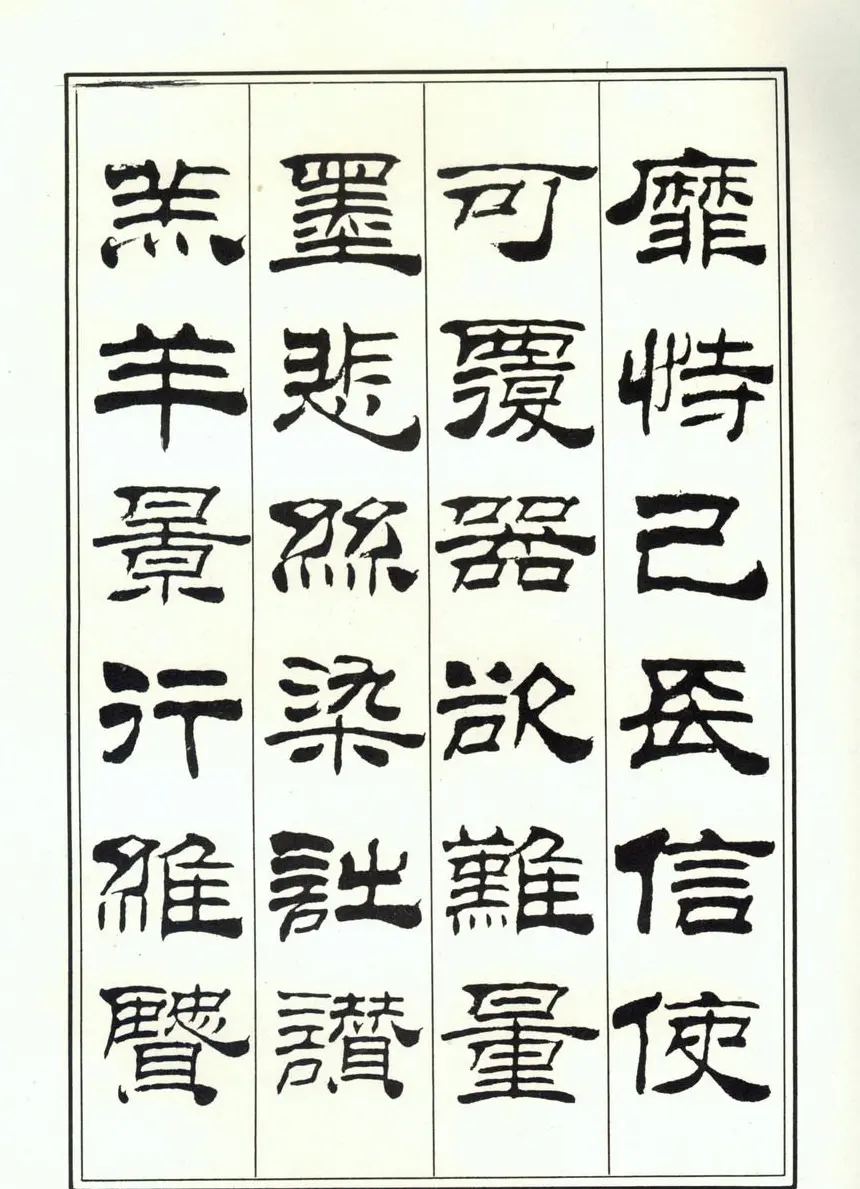 靡恃己長信使
可覆器欲難量
墨悲絲染詩讚
羔羊景行維賢